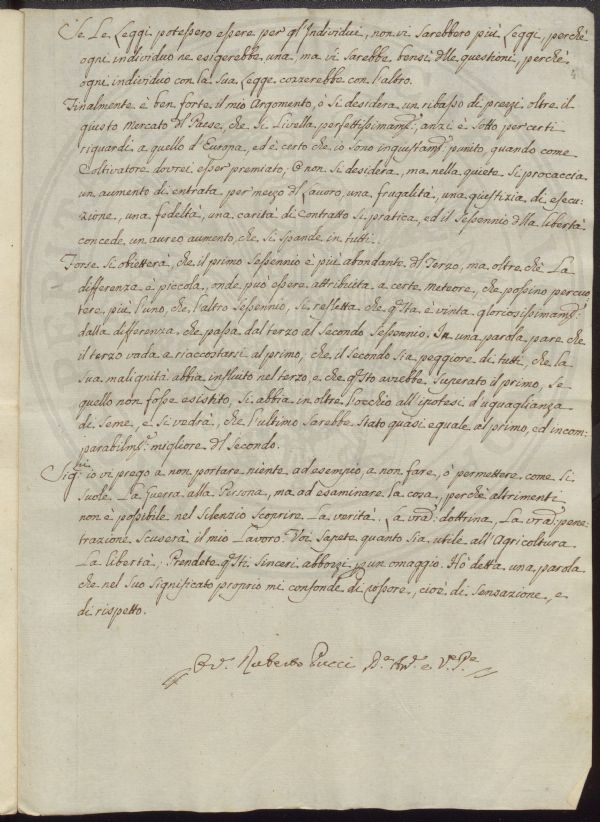 Se Le Leggi potessero essere per gl'Individui, non vi sarebbero più Leggi, perchè
ogni individuo ne esigerebbe una, ma vi sarebbe bensì delle questioni, perchè
ogni individuo con la sua Legge cozzerebbe con l'altro.
Finalmente è ben forte il mio Argomento, ò si desidera un ribasso di prezzi oltre il
questo Mercato del Paese, che si Livella perfettissimam:, anzi è sotto per certi
riguardi a quello d'Europa, ed è certo che io sono ingiustam: punito, quando come
Coltivatore dovrei esser premiato; non si desidera, ma nella quiete si procaccia
un aumento di entrata per mezzo del Lavoro, una frugalità, una giustizia di esecu-
zione, una fedeltà, una carità di Contratto si pratica, ed il Sessennio della libertà
concede un aureo aumento, che si spande in tutti.
Forse si obietterà, che il primo Sessennio è più abondante del Terzo, ma oltre chè La
differenza è piccola, onde può essere attribuita a certe Meteore, che possino percuo
tere più l'uno, che l'altro Sessennio, si refletta che q.sta è vinta gloriosissimam:
dalla differenza, che passa dal terzo al Secondo Sessennio. In una parola pare che
il terzo vada a riaccostarsi al primo, che il Secondo sia peggiore di tutti, che la
sua malignità abbia influito nel terzo, e che q.sto avrebbe superato il primo, se
quello non fosse esistito, si abbia in oltre l'occhio all'ipotesi d'uguaglianza
di Seme, e si vedrà, che l'ultimo sarebbe stato quasi eguale al primo, ed incom-
parabilm: migliore del Secondo.
Sig.ri io vi prego a non portare niente ad esempio, a non fare, ò permettere come si
suole La guerra alla Persona, ma ad esaminare la cosa, perchè altrimenti
non è possibile nel silenzio scoprire La verità. La vra: dottrina, La vra: pene-
trazione scuserà il mio Lavoro. Voi sapete quanto sia utile all'Agricoltura
La libertà; Prendete q.sti sinceri abbozzi p un omaggio. Hò detta una parola
che nel suo significato proprio mi confonde di rossore, cioè di sensazione, e
di rispetto.
Ruberto Pucci